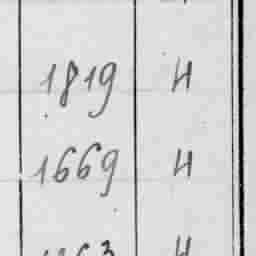 1819 H
1669 H